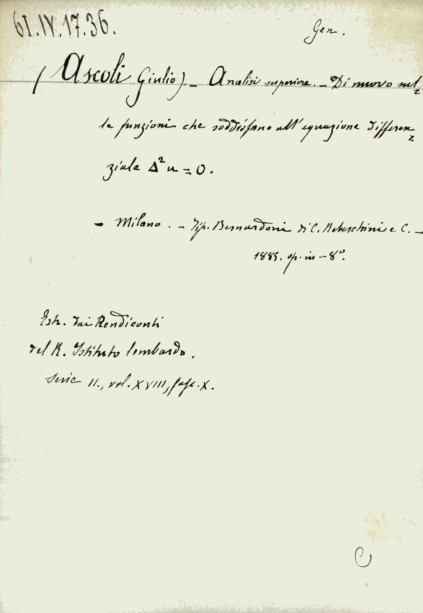 61.IV.17.36.
Gen.
(Ascoli Giulio) - Analisi superiore. - Di nuovo nel=
le funzioni che soddisfano all'equazione differen=
ziale Δ²u = 0.
- Milano. - Tip. Bernardoni di C. Rebeschini e C. -
1885. op. in-8º.
Estr. dai Rendiconti
del R. Istituto lombardo.
Serie II., vol. XVIII, fasc. X.
C